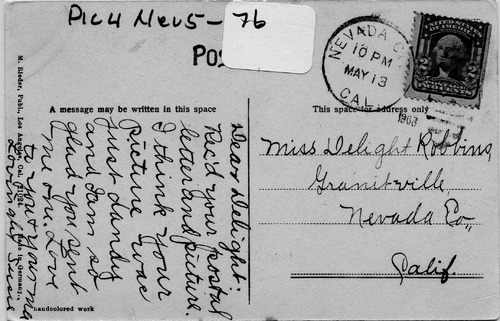 Pic 4 Nev 5 - 76
POS
NEVADA C
10 PM
MAY 13
CAL.
1908
M. Rieder, Publ., Los Angeles, Cal.
Made in Germany.
A message may be written in this space
This space for address only
Dear Delight:
Rec'd your postal
letter and picture.
I think your
Picture was
just dandy
and I am so
glad you sent
me one. Love
to you & your ma
Lovingly
handcolored work
Miss Delight Robbins
Granitville,
Nevada Co.,
Calif.